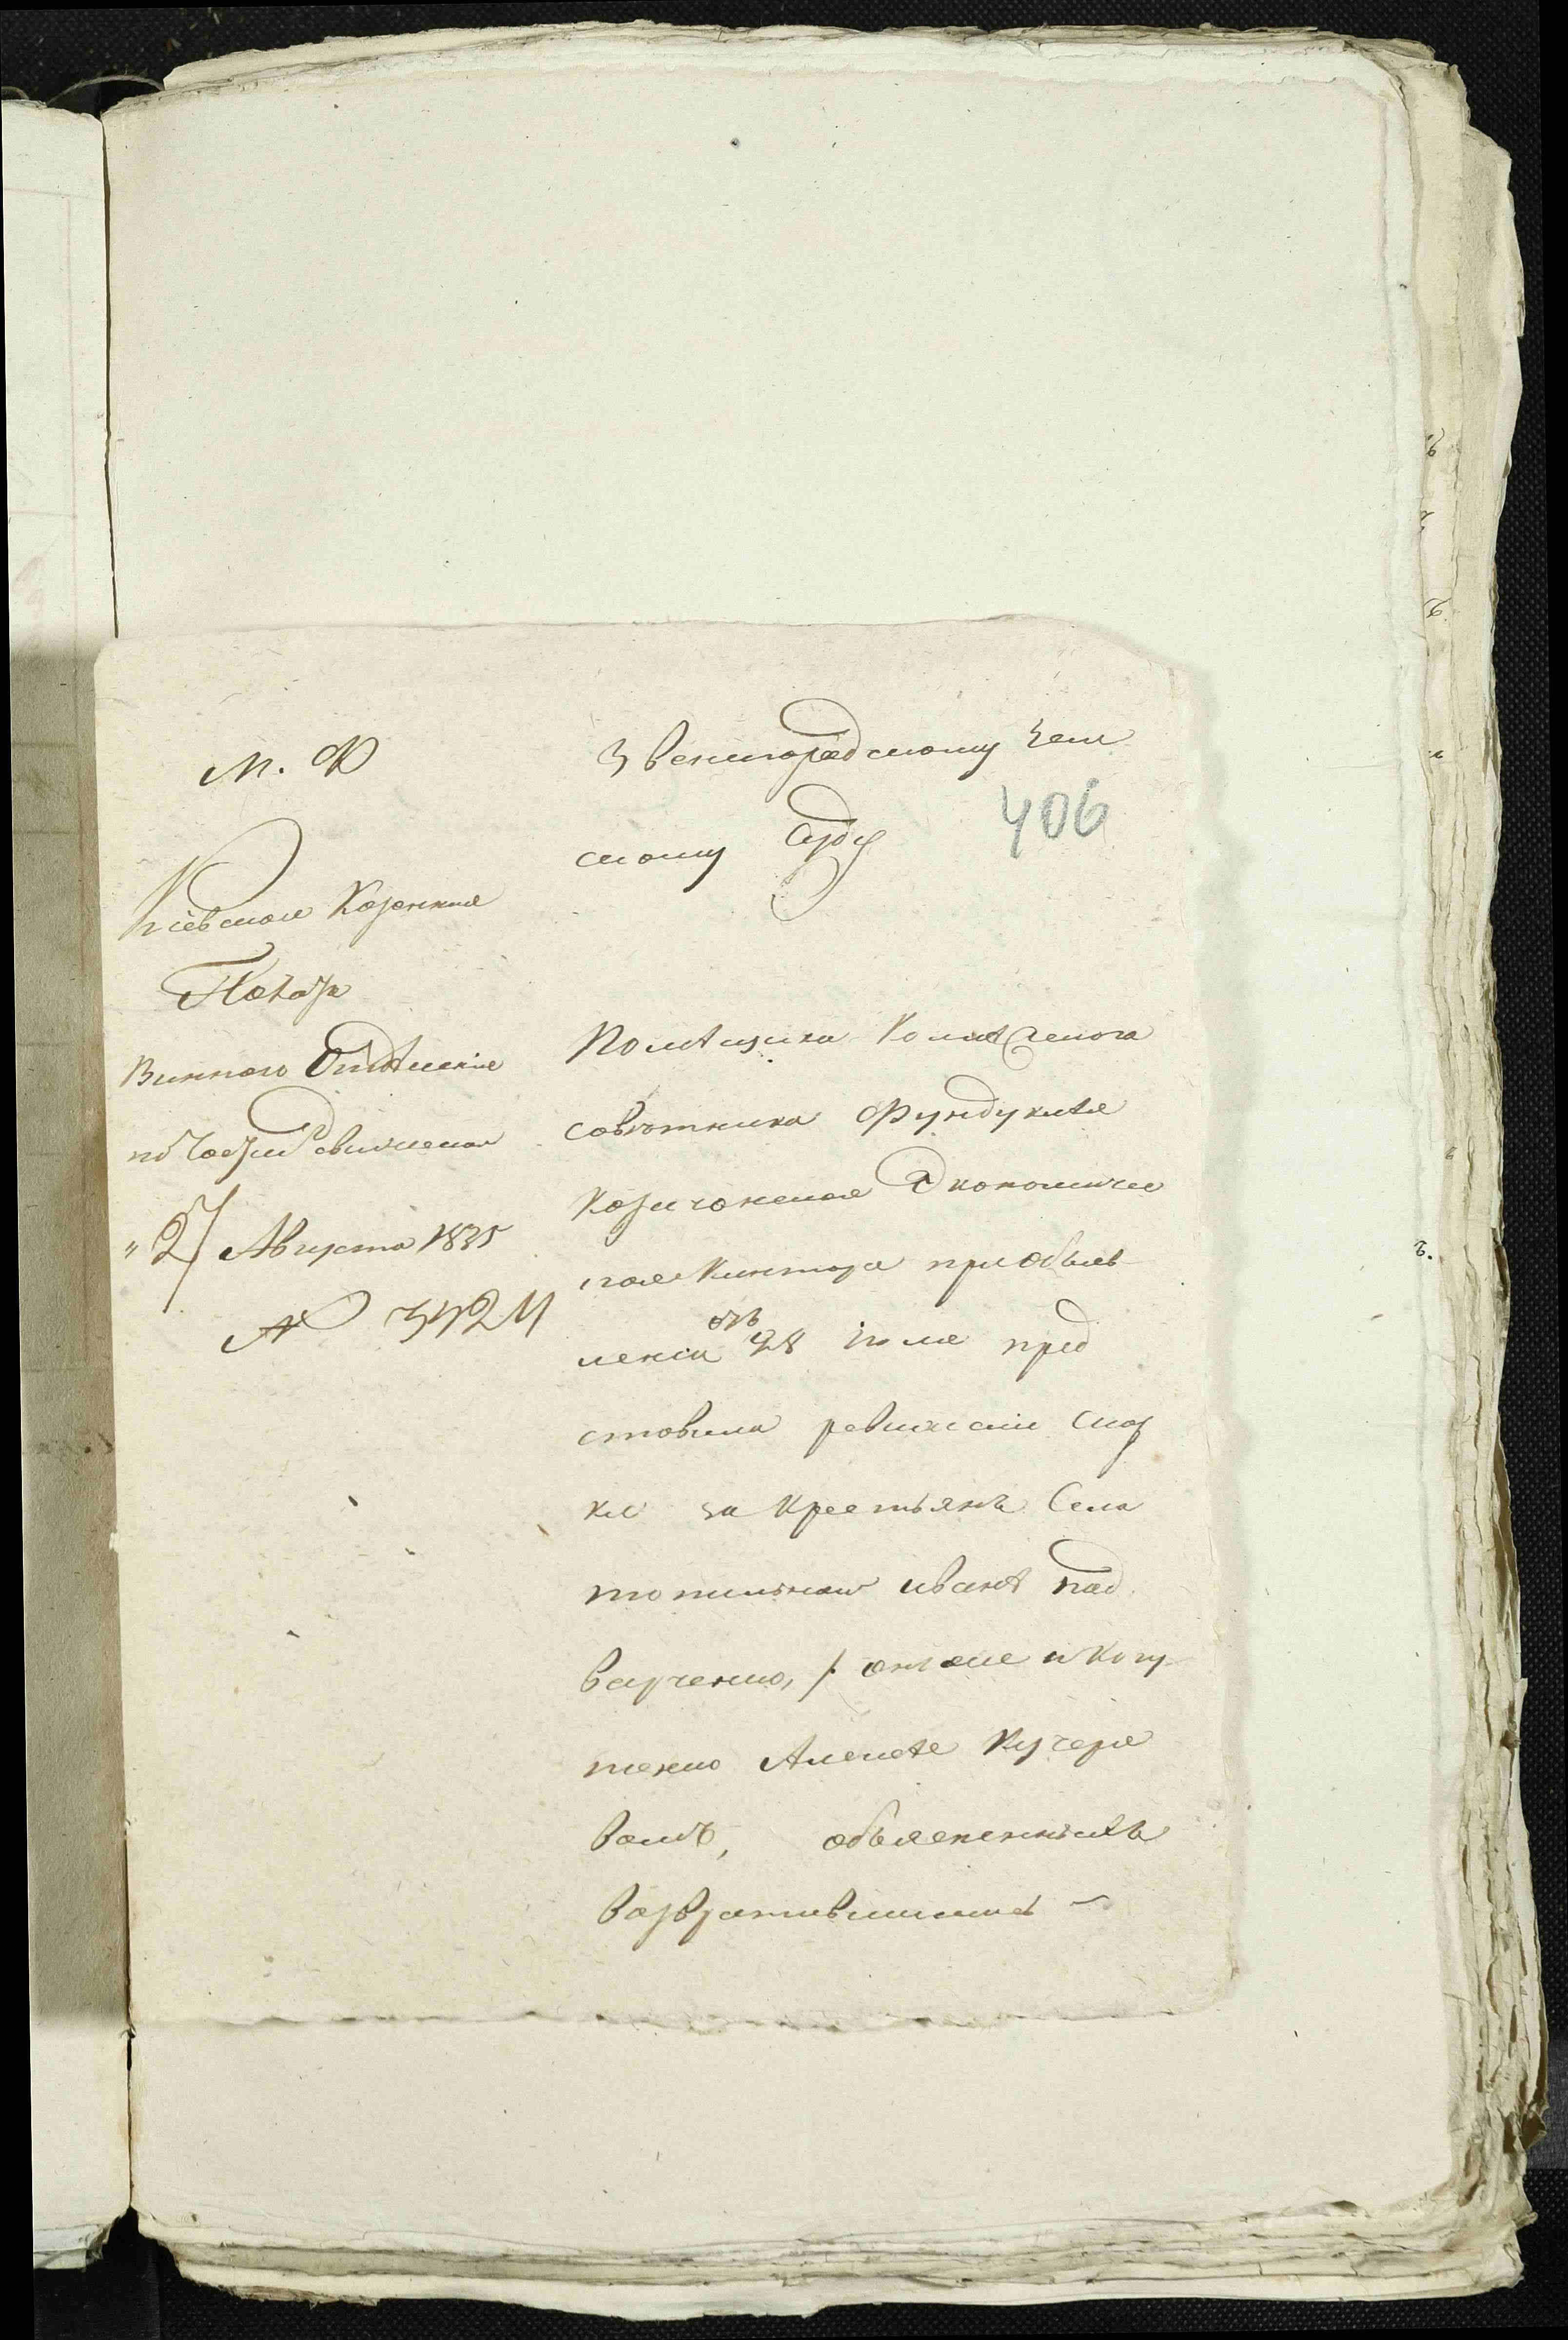 М. Ф
Кіевской Казенной
Палаты
Виннаго Отдѣленія
по Части Ревижской
"27 Августа 1835
№ 3424
Звенигородскому Зем
скому Суду
406
Помѣщика Колежскаго
Совѣтника Фундуклѣя
Економичес
кая Контора при объяв
леніи отъ 28 іюля пред
ставила ревижскія Сказ
ки за Крестьянъ Села
Ивана Над
Алексѣя Кучеря
ваго,
возвратившимися